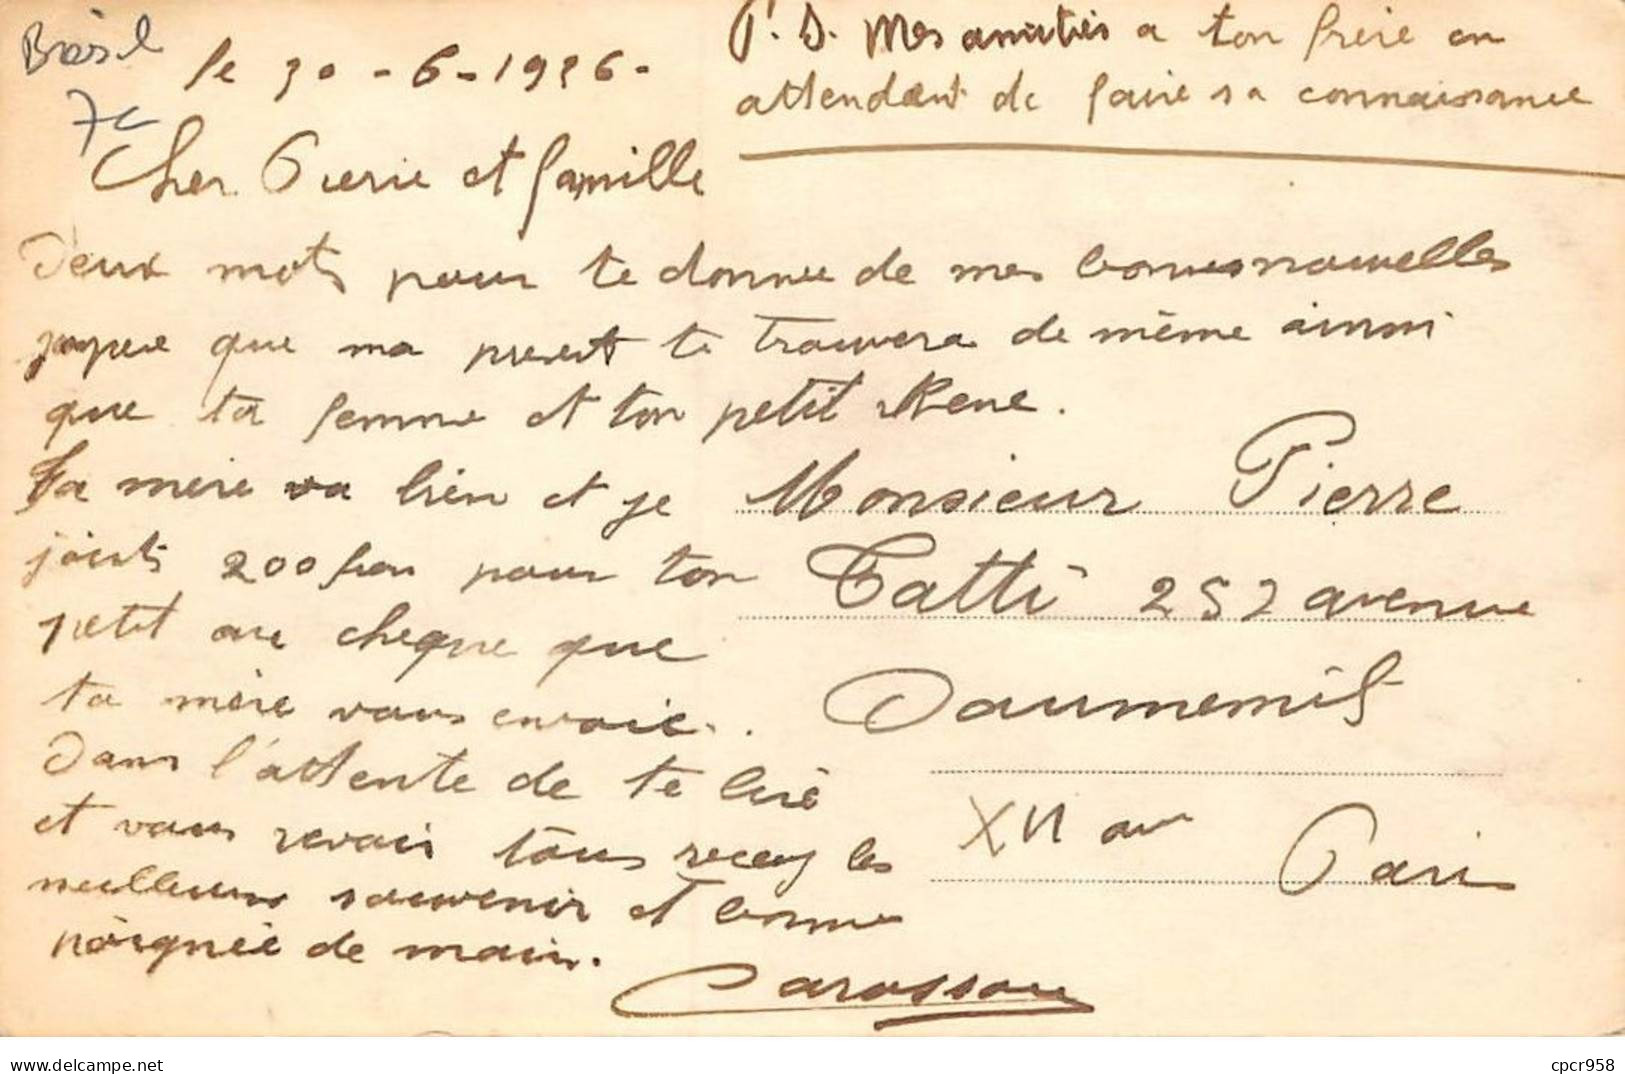 Brésil
7c
le 30-6-1926-
P.S. Mes amitiés a ton frère en
attendant de faire sa connaissance
Cher Pierre et famille
Deux mots pour te donner de mes bonnes nouvelles
que ma present te trouvera de même ainsi
que ta femme et ton petit Rene.
Ta mère va bien et je
joint 200 pour ton
petit au cheque que
ta mère vous envoie.
Dans l'attente de te lire
et vous revoir tous recey les
meilleurs souvenir et bonne
poignée de main.
Monsieur Pierre
Tatti 252 avenue
Daumenil
XII arr
Paris
delcampe.net
cpcr958